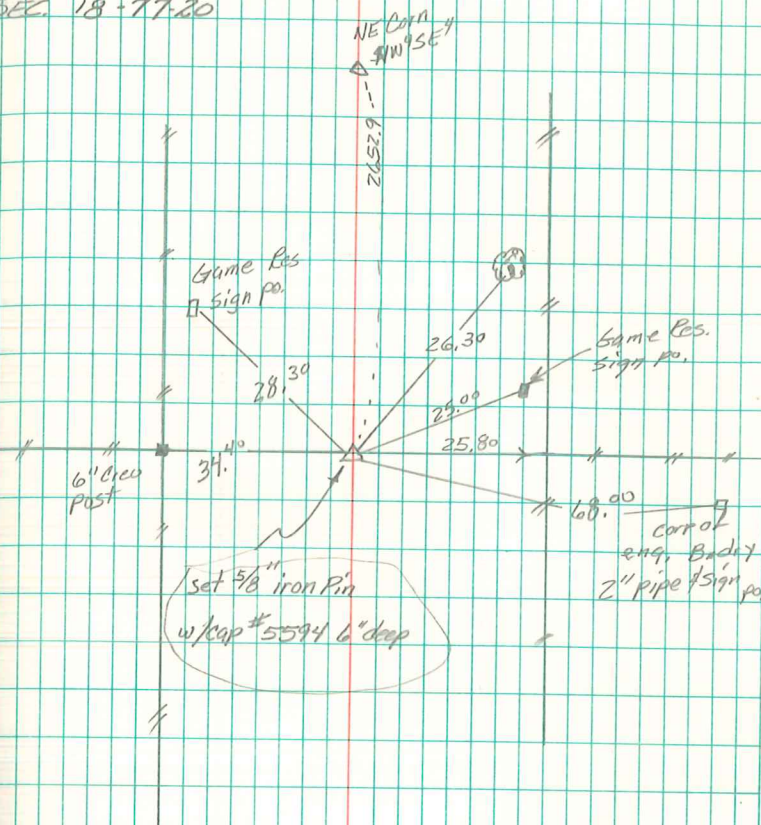 SEC. 18-77-20
NE Corn
NW⁴SE⁴
2652.9
Game Res
sign po.
28.30
26.30
Game Res.
sign po.
25.00
25.80
6" Creo
post
34.40
68.00
corp of
eng. Bndry
2" pipe & sign po.
set 5/8" iron Pin
w/cap #5594 6" deep